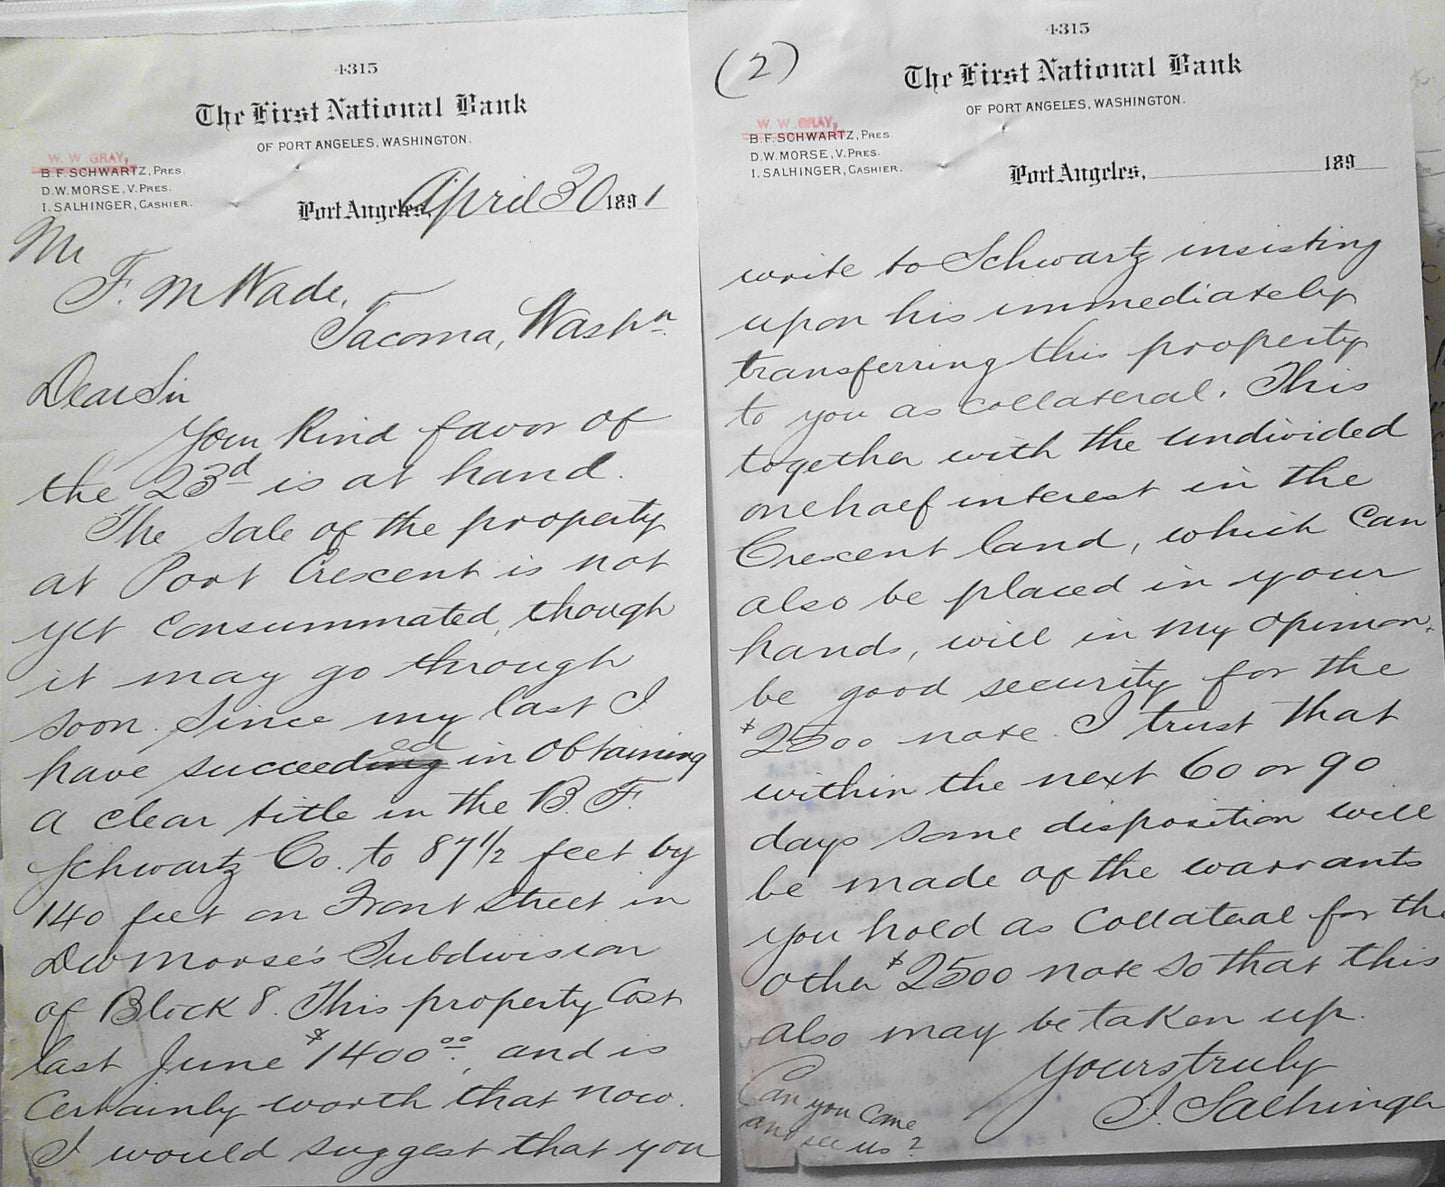 4315
The First National Bank
OF PORT ANGELES, WASHINGTON.
W. W. GRAY,
B. F. SCHWARTZ, PRES.
D. W. MORSE, V. PRES.
I. SALHINGER, CASHIER.
Port Angeles, April 30 1891
Mr
F. M Wade,
Tacoma, Washn.
Dear Sir
Your kind favor of
the 23d is at hand.
The sale of the property
at Port Crescent is not
yet consummated, though
it may go through
soon. Since my last I
have succeeding ed in obtaining
a clear title in the B. F.
Schwartz Co. to 87 1/2 feet by
140 feet on Front Street in
DW Morse's Subdivision
of Block 8. This property cost
last June $1400 00, and is
certainly worth that now.
I would suggest that you
(2)
4315
The First National Bank
OF PORT ANGELES, WASHINGTON.
W. W. GRAY,
B. F. SCHWARTZ, PRES.
D. W. MORSE, V. PRES.
I. SALHINGER, CASHIER.
Port Angeles, 189
write to Schwartz insisting
upon his immediately
transferring this property
to you as collateral. This
together with the undivided
one half interest in the
Crescent land, which can
also be placed in your
hands, will in my opinion,
be good security for the
$2500 note. I trust that
within the next 60 or 90
days some disposition will
be made of the warrants
you hold as collateral for the
other $2500 note so that this
also may be taken up.
Yours truly
I. Salhinger
Can you come
and see us?